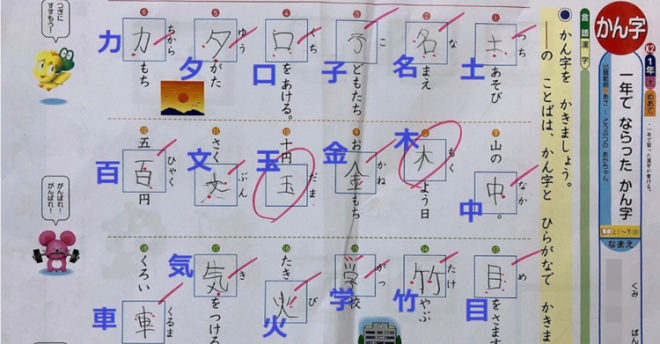 かん字
1年
めあて
一年で ならった かん字
なまえ
くみ
ばん
言語
漢字
かん字を かきましょう。
の ことばは、かん字と ひらがなで かきま
つち
土
土
あそび
な
名
名
まえ
こ
子
子
どもたち
くち
口
口
をあける。
ゆう
夕
夕
がた
ちから
力
力
もち
山の
なか
中
中
。
もく
木
木
よう日
お
かね
金
金
もち
十円
だま
玉
玉
さく
ぶん
文
文
五
ひゃく
百
百
円
め
目
目
をさます
たけ
竹
竹
やぶ
がっ
学
学
校
たき
び
火
火
き
気
気
をつける
くろい
くるま
車
車
つぎに
すすもう！
がんばれ！
がんばれ！